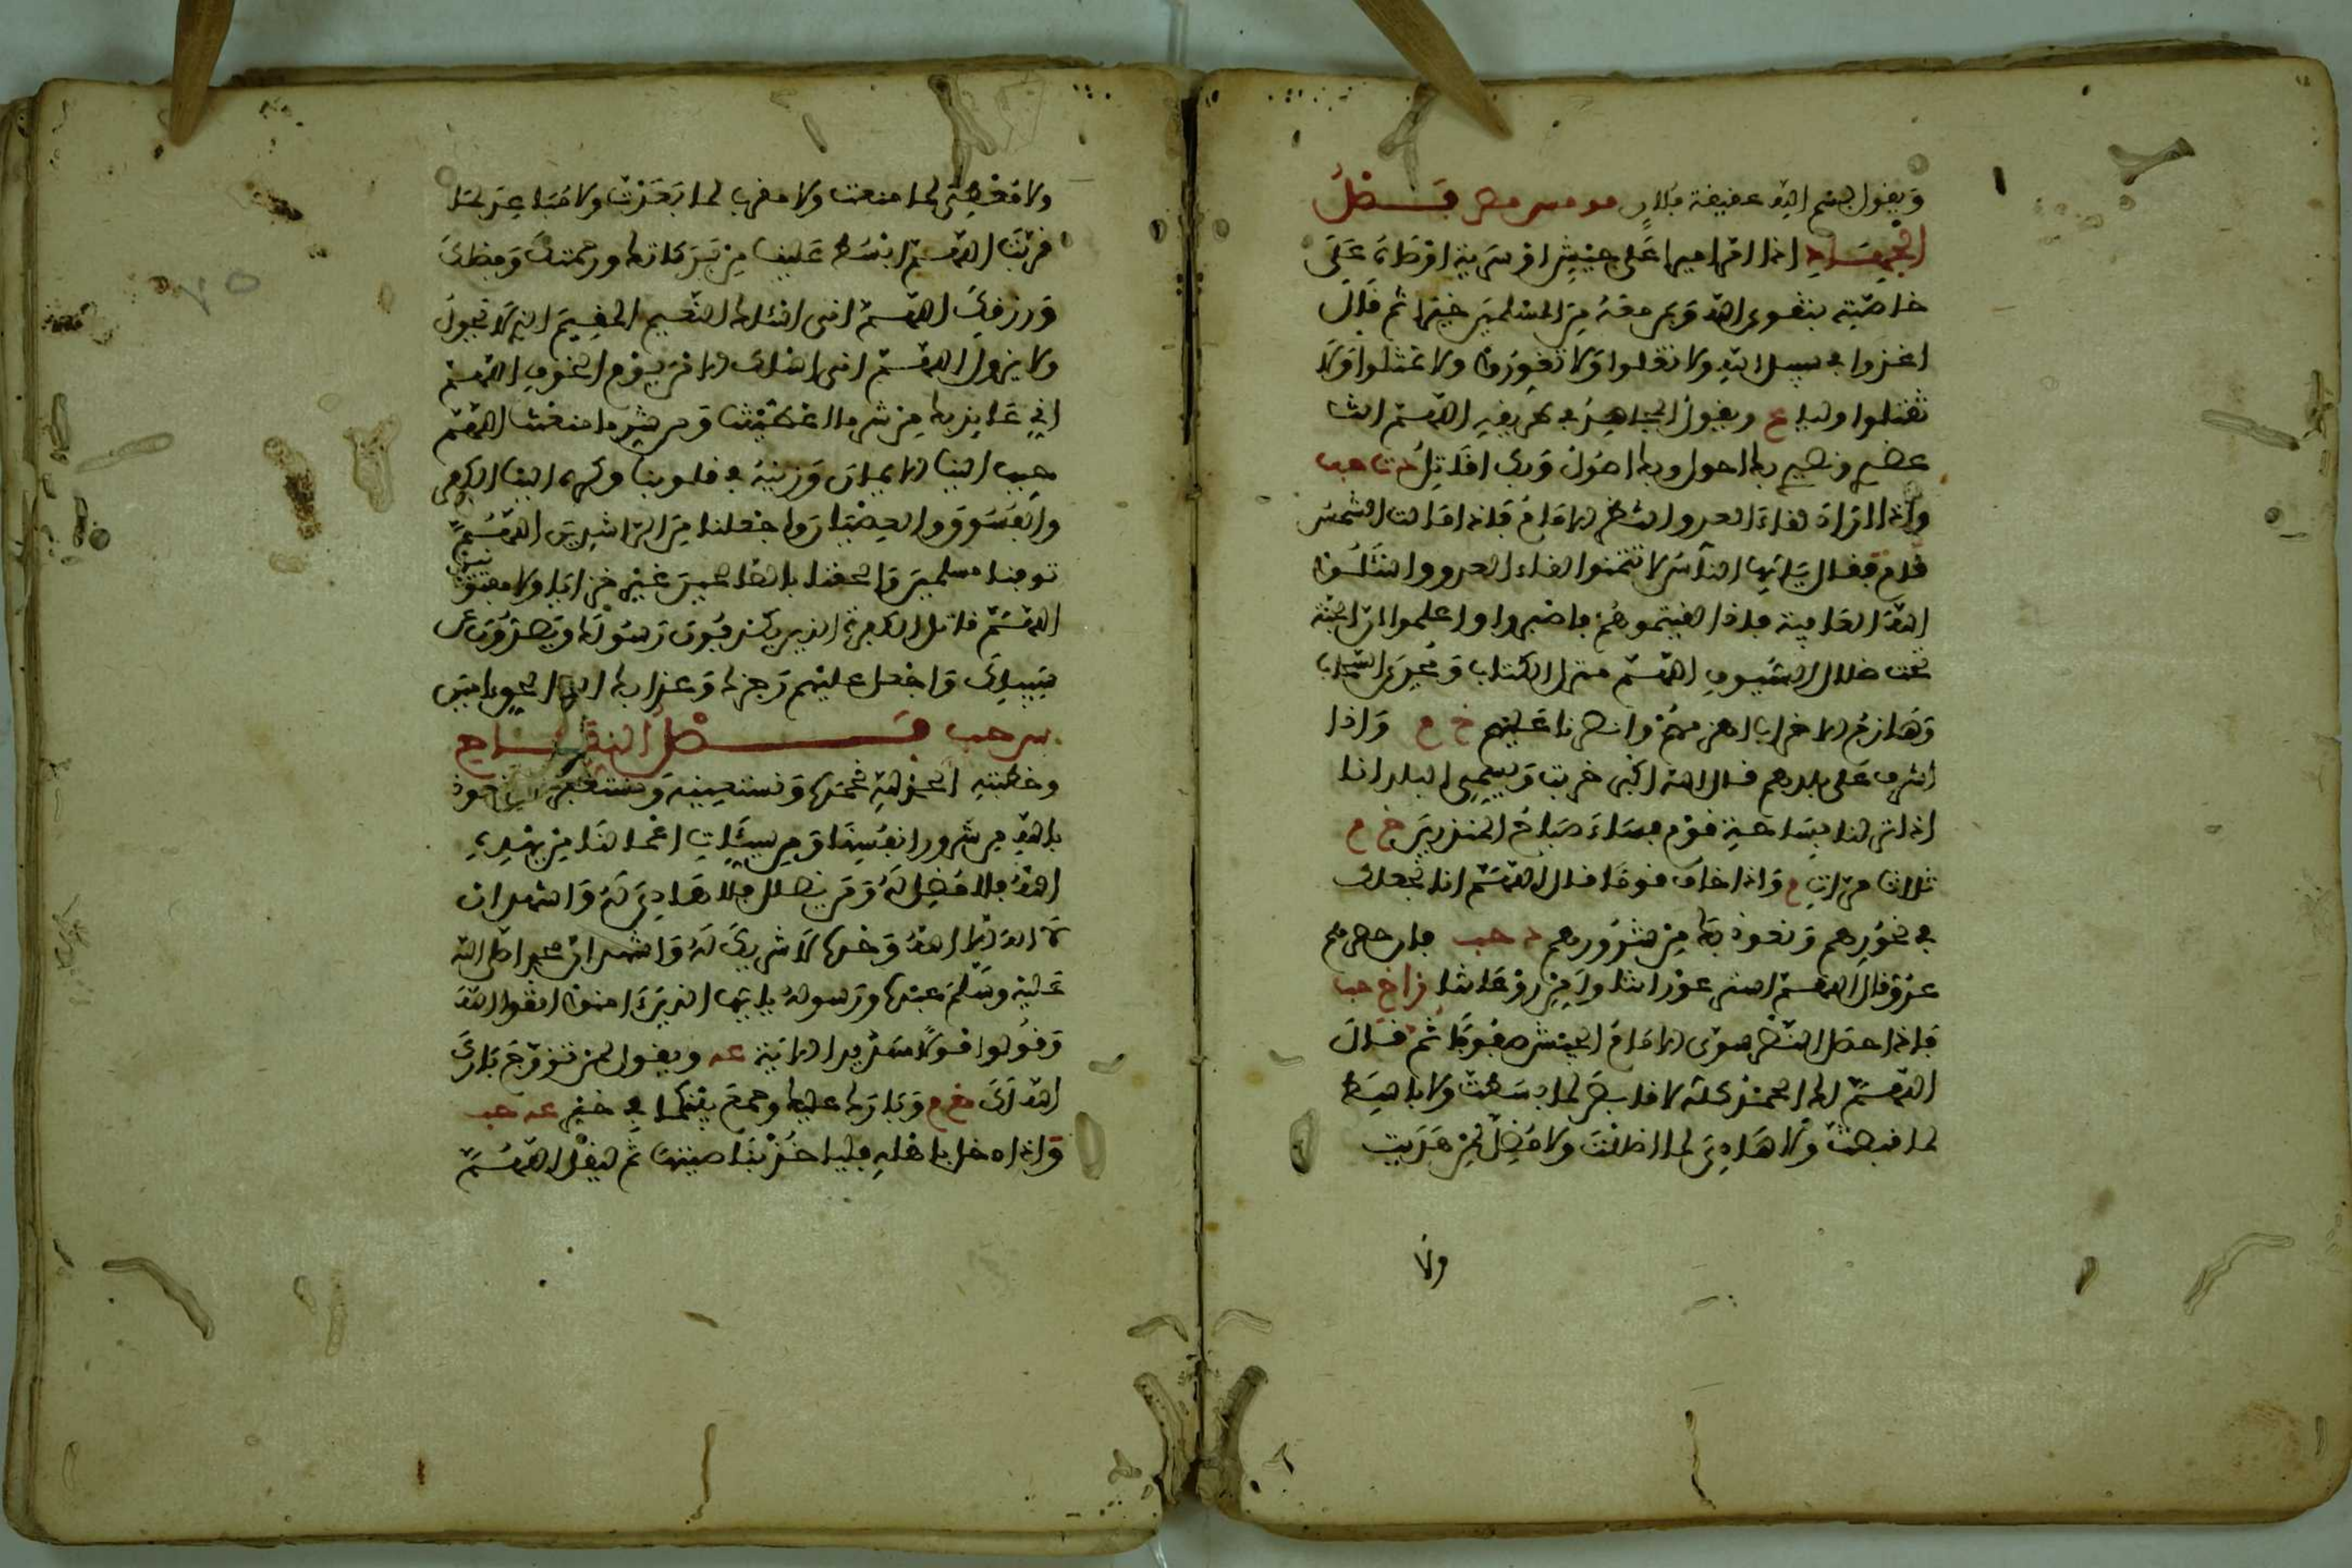 ويقول بسم الله عقيقة فلان مو مس مص فصل
الجهاد اذا امر اميرا على جيش او سرية اوصاه على
خاصته بتقوى الله ومن معه من المسلمين خيرا ثم قال
اغزوا في سبيل الله ولا تغلوا ولا تغدروا ولا تمثلوا ولا
تقتلوا وليدا م ويقول المجاهد في طريقه اللهم انت
عضدي ونصيري بك احول وبك اصول وبك اقاتل د ت حب
واذا اراد لقاء العدو انتظر الامام فاذا مالت الشمس
قام فقال يايها الناس لا تتمنوا لقاء العدو واسئلوا
الله العافية فاذا لقيتموهم فاصبروا واعلموا ان الجنة
تحت ظلال السيوف اللهم منزل الكتاب ومجري السحاب
وهازم الاحزاب اهزمهم وانصرنا عليهم خ م واذا
اشرف على بلدهم قال الله اكبر خربت ويسمي البلد انا
اذا نزلنا بساحة قوم فساء صباح المنذرين خ م
ثلاث مرات م واذا خاف قوما قال اللهم انا نجعلك
في نحورهم ونعوذ بك من شرورهم د حب فان حصرهم
عدو قال اللهم استر عوراتنا وامن روعاتنا ز ا خ حب
فاذا حصل النصر سوى الامام الجيش صفوفا ثم قال
اللهم لك الحمد كله لا قابض لما بسطت ولا باسط
لما قبضت ولا هادي لما اضللت ولا مضل لمن هديت
ولا
ولا معطي لما منعت ولا مقرب لما بعدت ولا مباعد لما
قربت اللهم ابسط علينا من بركاتك ورحمتك وفضلك
ورزقك اللهم اني اسئلك النعيم المقيم الذي لا يحول
ولا يزول اللهم اني اسئلك الامن يوم الخوف اللهم
اني عايذ بك من شر ما اعطيتنا ومن شر ما منعت اللهم
حبب الينا الايمان وزينه في قلوبنا وكره الينا الكفر
والفسوق والعصيان واجعلنا من الراشدين اللهم
توفنا مسلمين والحقنا بالصالحين غير خزايا ولا مفتونين
اللهم قاتل الكفرة الذين يكذبون رسولك ويصدون عن
سبيلك واجعل عليهم رجزك وعذابك اله الحق امين
س حب فصل النكاح
وخطبته الحمد لله نحمده ونستعينه ونستغفره ونعوذ
بالله من شرور انفسنا ومن سيئات اعمالنا من يهده
الله فلا مضل له ومن يضلل فلا هادي له واشهد ان
لا اله الا الله وحده لا شريك له واشهد ان محمدا صلى الله
عليه وسلم عبده ورسوله يايها الذين ءامنوا اتقوا الله
وقولوا قولا سديدا الاية عه ويقول لمن تزوج بارك
الله لك خ م وبارك عليك وجمع بينكما في خير عه حب
واذا دخل باهله فلياخذ بناصيتها ثم ليقل اللهم